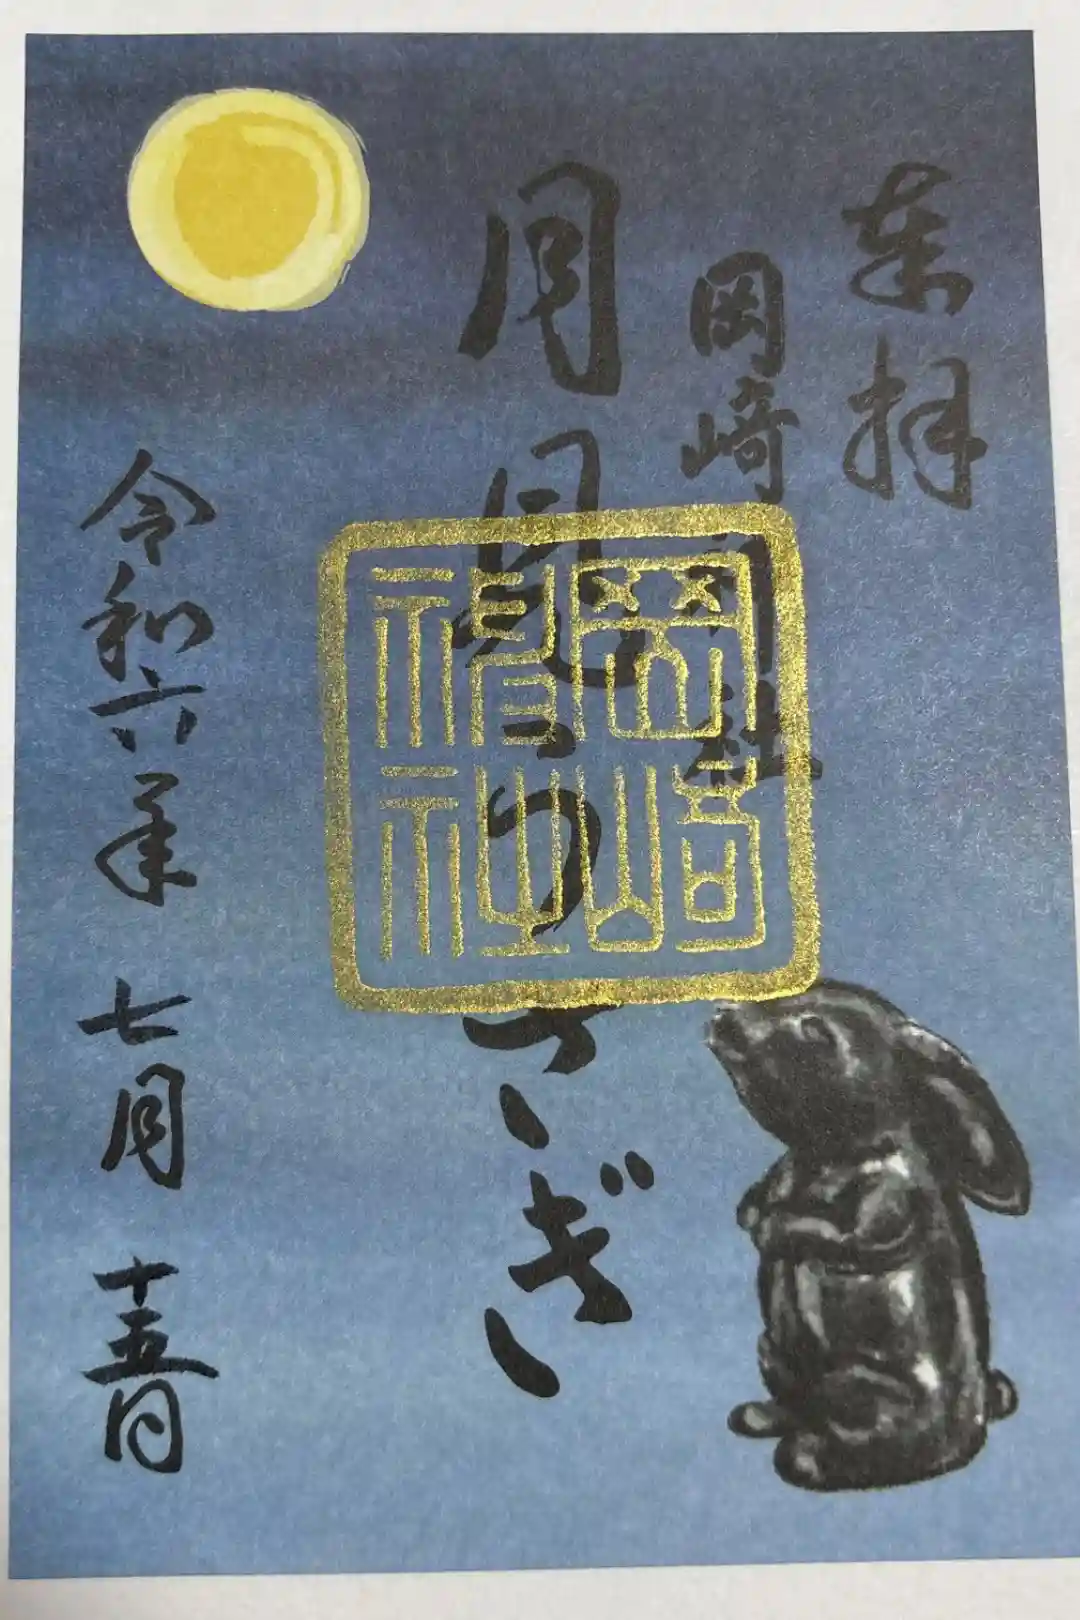 奉拝
岡崎神社
月見うさぎ
岡崎神社
令和六年七月十五日